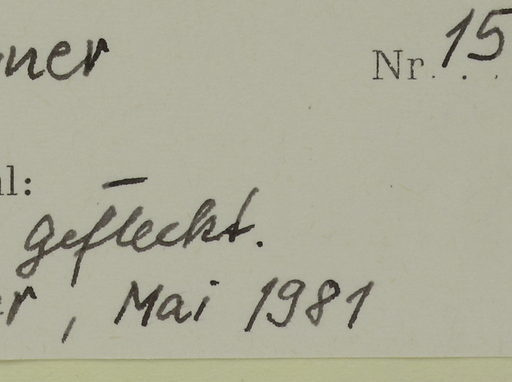 ner Nr. 15
l: –
gefleckt.
er, Mai 1981